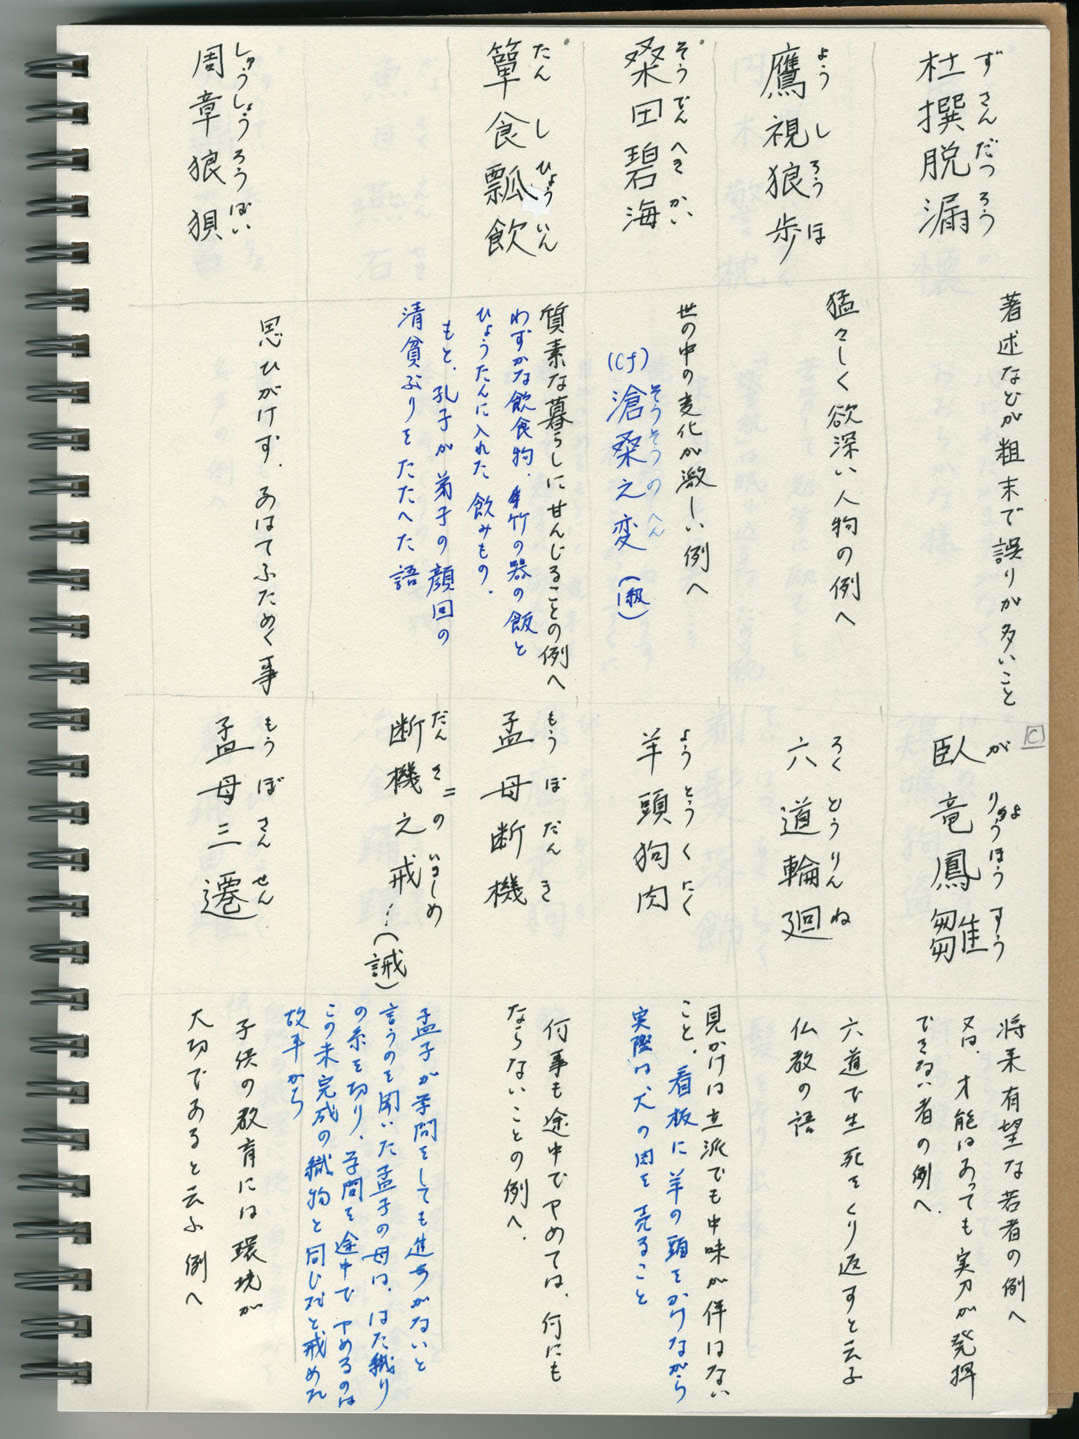 杜撰脱漏
ずさんだつろう
著述などが粗末で誤りが多いこと
鷹視狼歩
ようしろうほ
猛々しく欲深い人物の例へ
桑田碧海
そうでんへきかい
世の中の変化が激しい例へ
(cf)滄桑之変(1級)
そうそうのへん
簞食瓢飲
たんしひょういん
質素な暮らしに甘んじることの例へ
わずかな飲食物. 竹の器の飯と
ひょうたんに入れた飲みもの.
もと、孔子が弟子の顔回の
清貧ぶりをたたへた語
周章狼狽
しゅうしょうろうばい
思ひがけず.あはてふためく事
C
臥竜鳳雛
がりゅうほうすう
りょ
将来有望な若者の例へ
又は、才能はあっても実力が発揮
できない者の例へ.
六道輪廻
ろくどうりんね
六道で生死をくり返すと云ふ
仏教の語
羊頭狗肉
ようとうくにく
見かけは立派でも中味が伴はない
こと.看板に羊の頭をかけながら
実際は犬の肉を売ること
孟母断機
もうぼだんき
何事も途中でやめては、何にも
ならないことの例へ.
断機之戒(誡)
だんきのいましめ
孟子が学問をしても進歩がないと
言うのを聞いた孟子の母は、はた織り
の糸を切り、学問を途中でやめるのは
この未完成の織物と同じだと戒めた
故事から
孟母三遷
もうぼさんせん
子供の教育には環境が
大切であると云ふ例へ